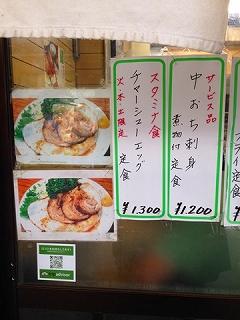 サービス品
中おち刺身
煮物付定食
¥1,200
スタミナ食
チャーシューエッグ
定食
火・木・土限定
¥1,300
フライ定食